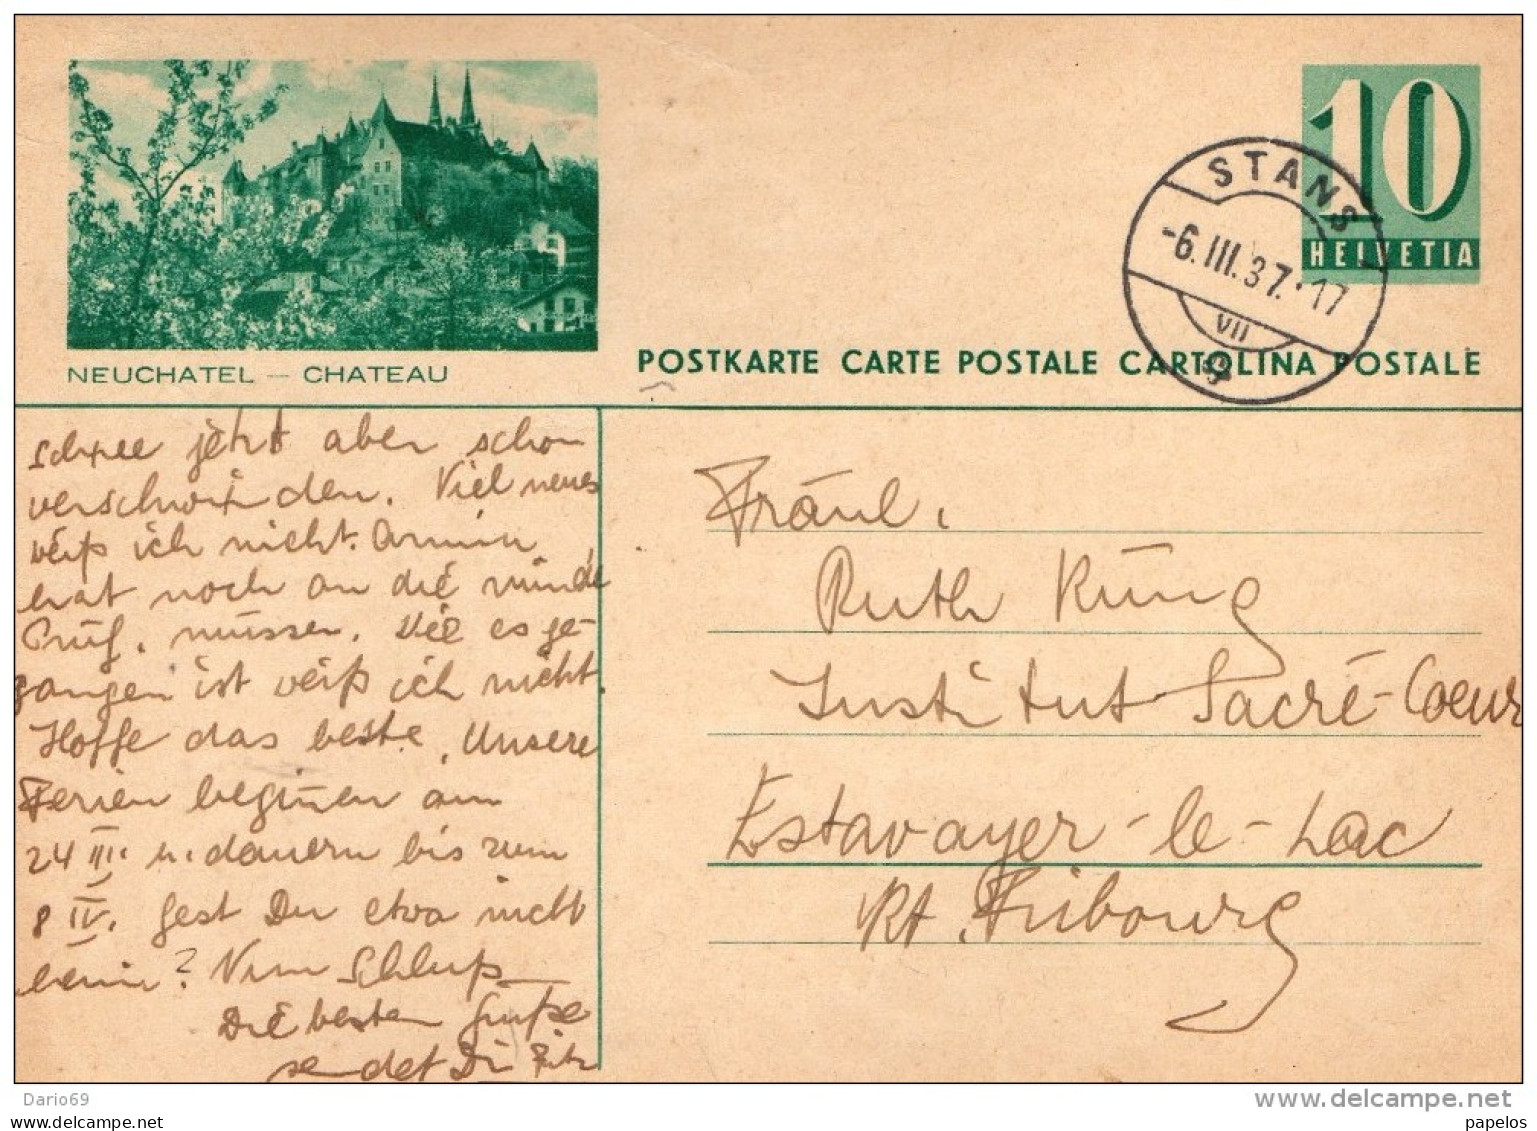 10
HELVETIA
STANS
-6.III.37.-17
VII
9
NEUCHATEL — CHATEAU
POSTKARTE CARTE POSTALE CARTOLINA POSTALE
Schnee jetzt aber schon
verschwunden. Viel neues
weiß ich nicht. Armin
hat noch an die münd.
Prüf. müssen. Wie es ge-
gangen ist weiß ich nicht.
Hoffe das beste. Unsere
Ferien beginen am
24 III. u. dauern bis zum
8 IV. gest Du etwa nicht
heim? Nun Schluß
Die besten Grüße
sendet Dir Fritz
Fräul.
Ruth Küng
Institut Sacré-Coeur
Estavayer-le-Lac
Kt. Fribourg
Dario69
www.delcampe.net
www.delcampe.net
papelos